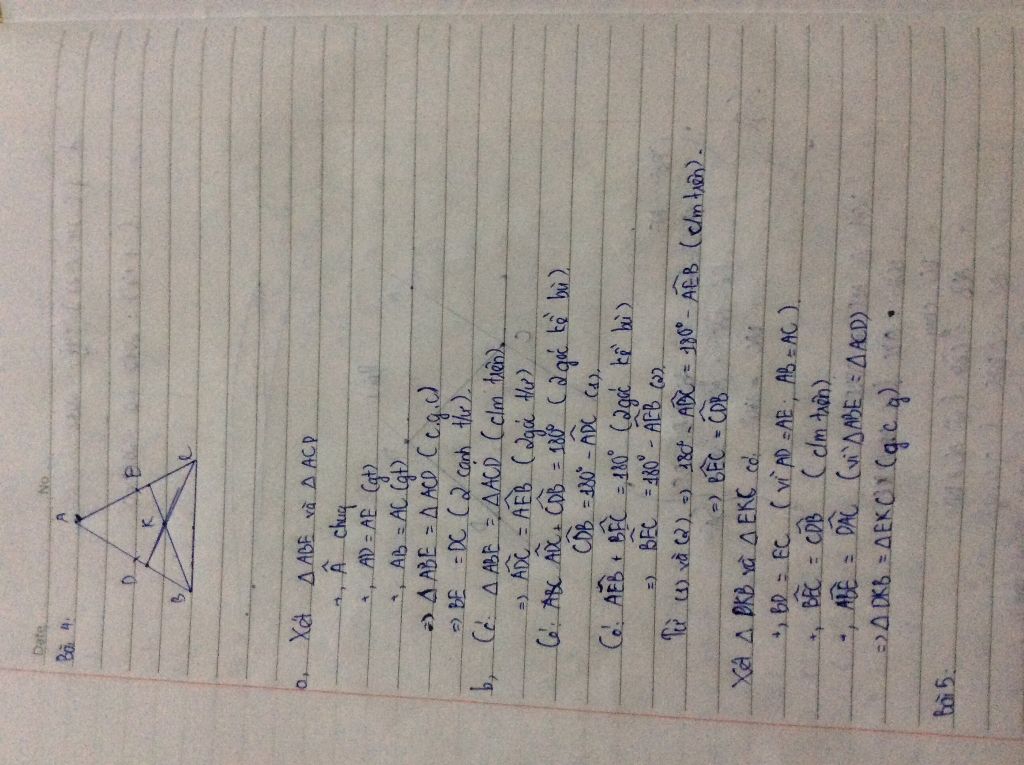 Date No
Bài 4.
A
D
E
K
B
C
a, Xét ΔABE và ΔACD
+, Â chung
+, AD = AE (gt)
+, AB = AC (gt)
=> ΔABE = ΔACD (c.g.c)
=> BE = DC (2 cạnh t/ư).
b, Có: ΔABE = ΔACD (c/m trên).
=> \widehat{ADC} = \widehat{AEB} (2 góc t/ư)
Có: ABC \widehat{ADC} + \widehat{CDB} = 180° (2 góc kề bù)
\widehat{CDB} = 180° - \widehat{ADC} (1).
Có: \widehat{AEB} + \widehat{BEC} = 180° (2 góc kề bù)
=> \widehat{BEC} = 180° - \widehat{AEB} (2).
Từ (1) và (2) => 180° - \widehat{ADC} = 180° - \widehat{AEB} (c/m trên).
=> \widehat{BEC} = \widehat{CDB}
Xét ΔDKB và ΔEKC có
+, BD = EC (vì AD = AE, AB = AC)
+, \widehat{BEC} = \widehat{CDB} (c/m trên)
+, \widehat{ABE} = \widehat{DAC} (vì ΔABE = ΔACD)
=> ΔDKB = ΔEKC (g.c.g)
Bài 5.